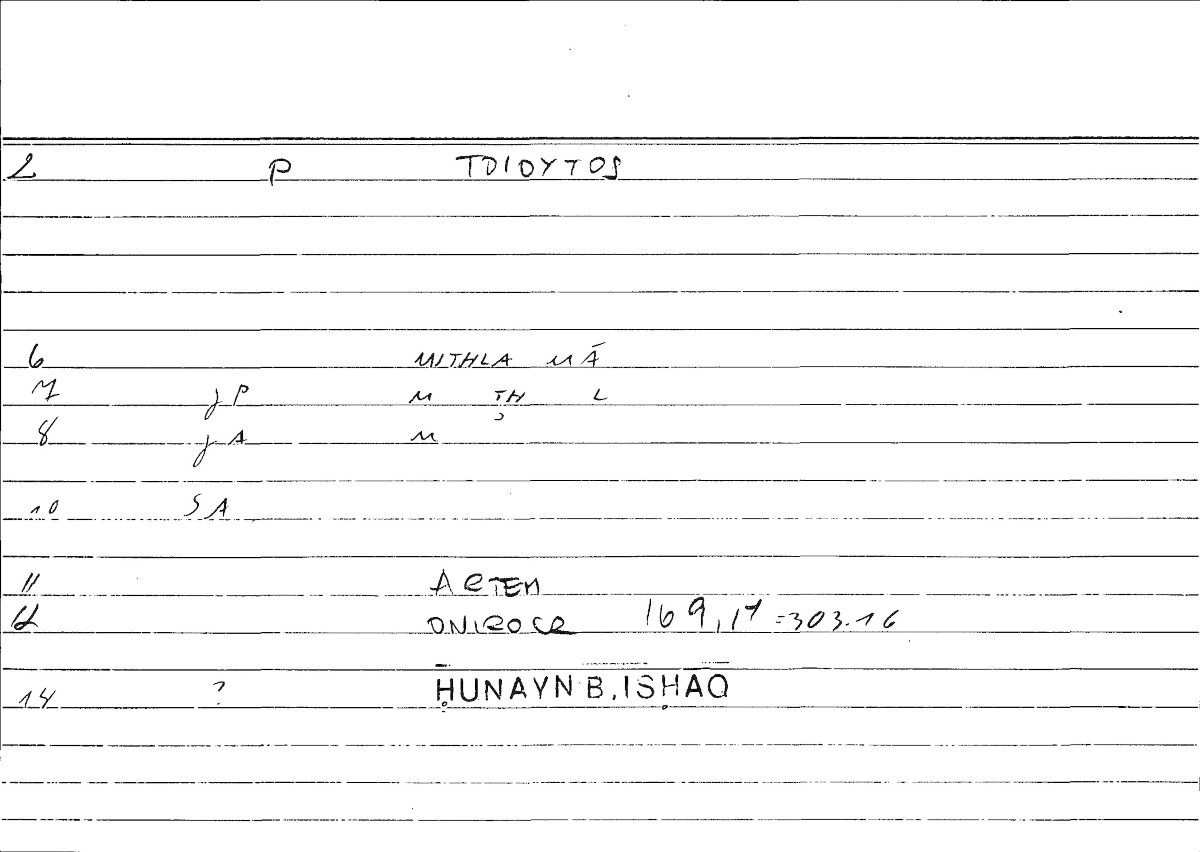 2 P TOIOYTOS
6 MITHLA MĀ
7 jP M TH L
8 jA M
10 SA
11 ARTEM
12 ONIROCR 169,17 = 303.16
14 ? ḤUNAYN B. ISḤAQ